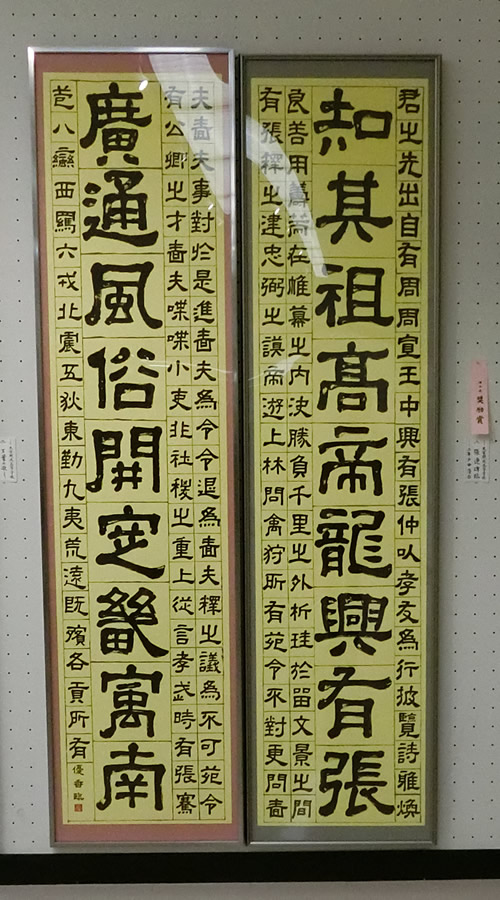 君之先出自有周周宣王中興有張仲以孝友為行披覽詩雅煥
知其祖高帝龍興有張
良善用籌策在帷幕之内決勝負千里之外析珪於留文景之間
有張釋之建忠弼之謨帝遊上林問禽狩所有苑令不對更問嗇
夫嗇夫事對於是進嗇夫為令令退為嗇夫釋之議為不可苑令
有公卿之才嗇夫喋喋小吏非社稷之重上從言孝武時有張騫
廣通風俗開定畿寓南
苞八蠻西羈六戎北震五狄東勤九夷荒遠既殯各貢所有
優香臨
奨励賞